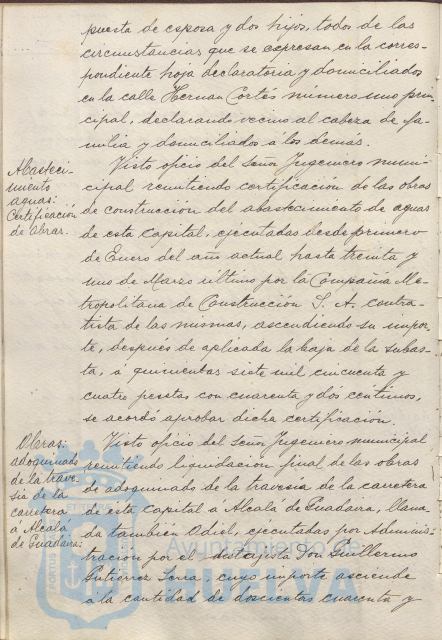 puesta de esposa y dos hijos, todos de las
circunstancias que se expresan en la corres-
pondiente hoja declaratoria y domiciliados
en la calle Hernan Cortés número uno prin-
cipal, declarando vecino al cabeza de fa-
milia y domiciliados á los demás.
Abasteci-
miento
aguas:
Certificación
de obras.
Visto oficio del Señor Ingeniero muni-
cipal remitiendo certificación de las obras
de construcción del abastecimiento de aguas
de esta Capital, ejecutadas desde primero
de Enero del año actual hasta treinta y
uno de Marzo último por la Compañia Me-
tropolitana de Construcción S. A. contra-
tista de las mismas, ascendiendo su impor-
te, después de aplicada la baja de la subas-
ta, á quinientas siete mil cincuenta y
cuatro pesetas con cuarenta y dos céntimos,
se acordó aprobar dicha certificación.
Obras:
adoquinado
de la trave-
sia de la
carretera
á Alcalá
de Guadaira:
Visto oficio del Señor Ingeniero municipal
remitiendo liquidacion final de las obras
de adoquinado de la travesia de la carretera
de esta Capital á Alcalá de Guadaira, llama-
da tambien Odiel, ejecutadas por Adminis-
tración por el destajista Don Guillermo
Gutiérrez Serra, cuyo importe asciende
á la cantidad de doscientas cuarenta y
Ayuntamiento de
HUELVA